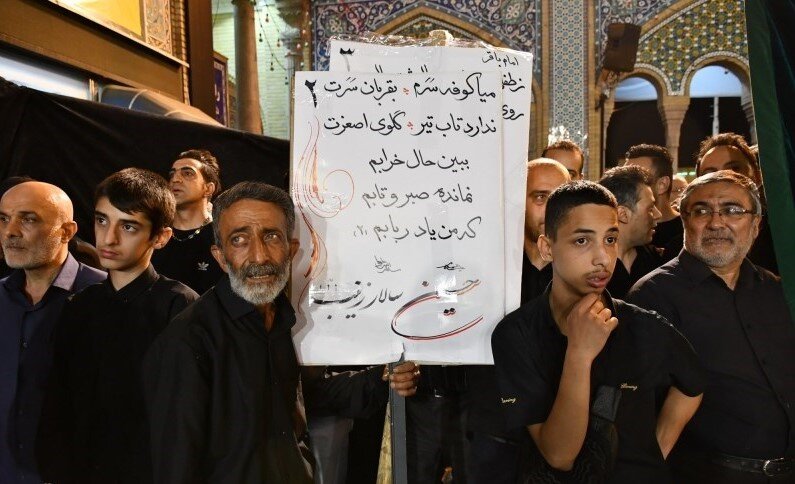 ۳
امام باقر
روی
۲ میا کوفه سَرَم بقربان سَرَت
ندارد تاب تیر گلوی اصغرت
ببین حال خرابم
نمانده صبر و تابم
که من یاد ربابم «۲»
حسین سالار زینب